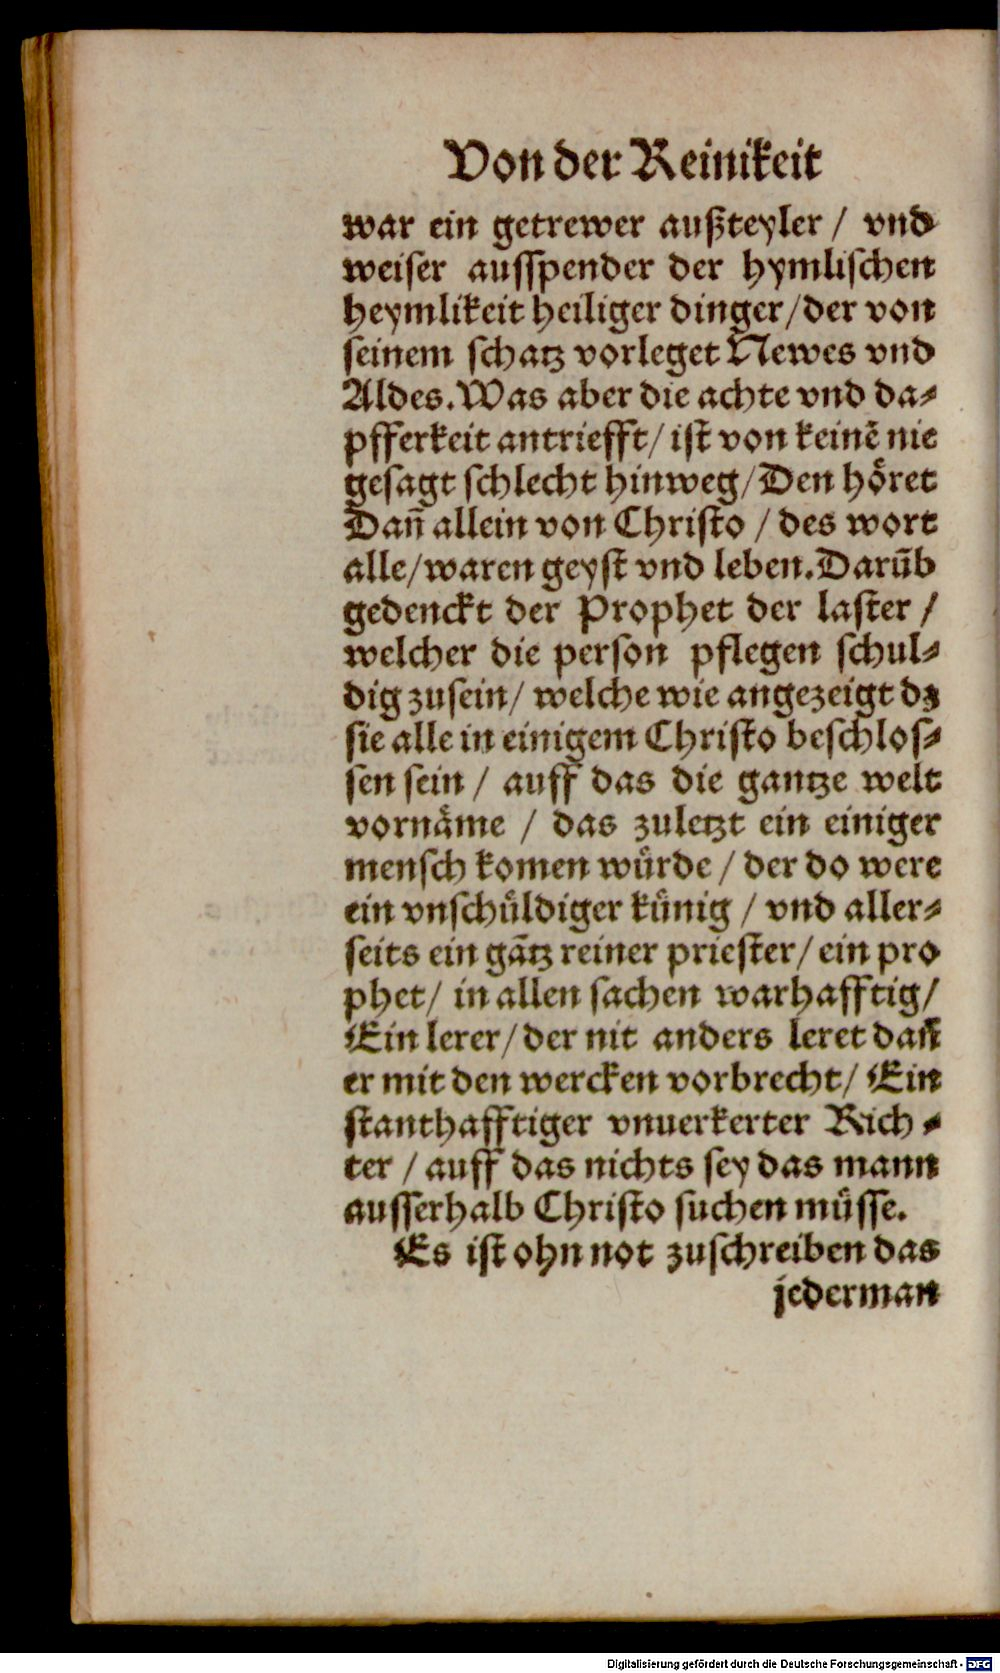 Von der Reinikeit
war ein getrewer außteyler / vnd
weiser ausspender der hymlischen
heymlikeit heiliger dinger / der von
seinem schatz vorleget Newes vnd
Aldes. Was aber die achte vnd da⸗
pfferkeit antriefft / ist von keinē nie
gesagt schlecht hinweg / Den hoͤret
Dañ allein von Christo / des wort
alle / waren geyst vnd leben. Darūb
gedenckt der Prophet der laster /
welcher die person pflegen schul⸗
dig zusein / welche wie angezeigt dz
sie alle in einigem Christo beschlos⸗
sen sein / auff das die gantze welt
vornaͤme / das zuletzt ein einiger
mensch komen wuͤrde / der do were
ein vnschuͤldiger kuͤnig / vnd aller⸗
seits ein gātz reiner priester / ein pro
phet / in allen sachen warhafftig /
Ein lerer / der nit anders leret dañ
er mit den wercken vorbrecht / Ein
stanthafftiger vnuerkerter Rich⸗
ter / auff das nichts sey das mann
ausserhalb Christo suchen muͤsse.
Es ist ohn not zuschreiben das
jederman
Digitalisierung gefördert durch die Deutsche Forschungsgemeinschaft - DFG